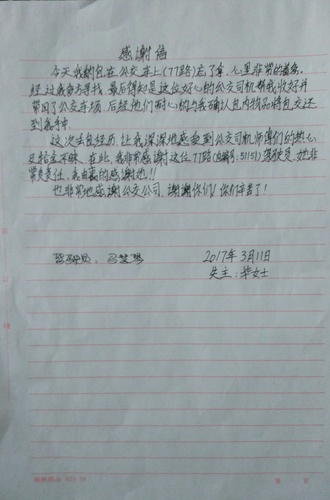 感谢信
今天我的包在公交车上(77路)忘了拿,心里非常的着急。
经过我多方寻找,最后得知是这位好心的公交司机帮我收好并
带回了公交车场,后经他们耐心的与我确认包内物品将包交还
到我手中。
这次丢包经历,让我深深地感受到公交司机师傅们的热心
及拾金不昧。在此,我非常感谢这位77路(自编号:51151)驾驶员,她非
常负责任,我由衷的感谢她!!
也非常地感谢公交公司,谢谢你们!你们辛苦了!
驾驶员:
2017年3月11日
失主:华女士